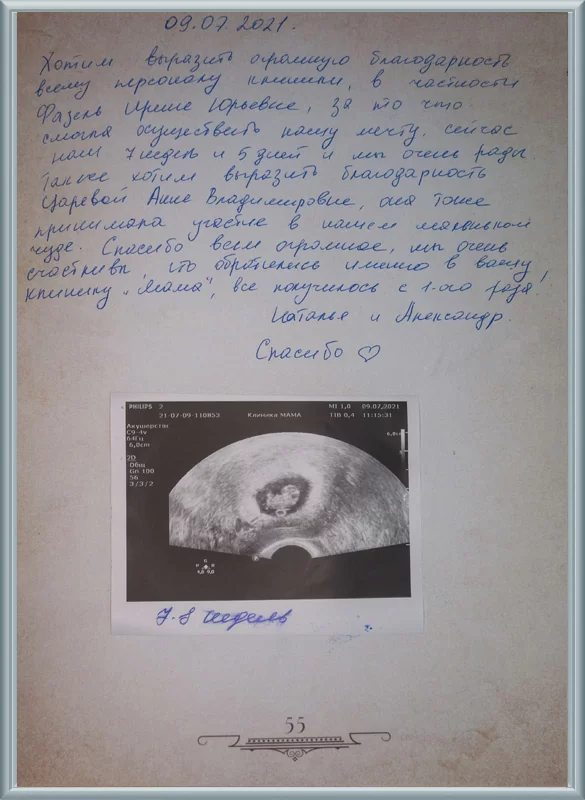 09.07.2021.
Хотим выразить огромную благодарность
всему персоналу клиники, в частности
Фазень Ирине Юрьевне, за то что
смогла осуществить нашу мечту, сейчас
нам 7 недель и 5 дней и мы очень рады.
Также хотим выразить благодарность
Царевой Анне Владимировне, она тоже
принимала участие в нашем маленьком
чуде. Спасибо всем огромное, мы очень
счастливы, что обратились именно в вашу
клинику „Мама", все получилось с 1-ого раза!
Наталья и Александр.
Спасибо ♡
PHILIPS 2 MI 1,0 09.07.2021
21-07-09-110853 Клиника МАМА TIB 0,4 11:15:31
Акушерство
C9-4v
64Гц
6,0cm
6,0
2D
Общ
Gn 100
56
3/3/2
7-8 недель
55